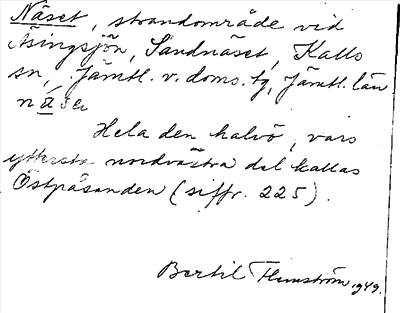 Näset, strandområde vid
Äsingsjön, Sandnäset, Kalls
sn, Jämtl. v. doms. tg, Jämtl. län
Hela den halvö, vars
yttersta nordvästra del kallas
Östpåsanden (siffr. 225).
Bertil Flemström 1949.